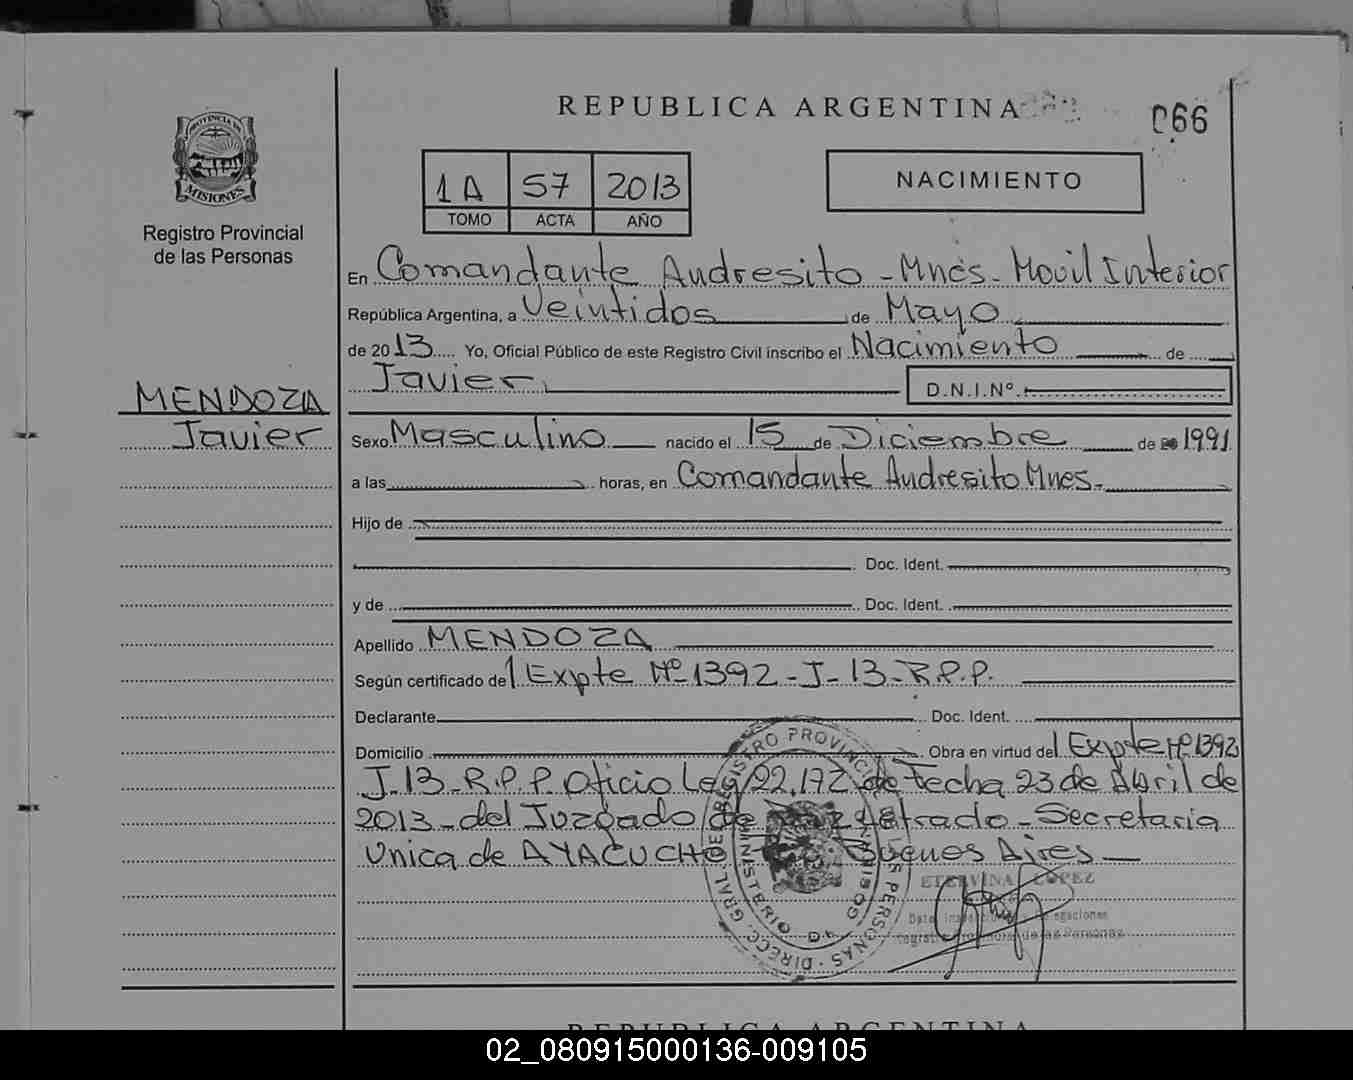 REPUBLICA ARGENTINA
066
PROVINCIA DE
MISIONES
Registro Provincial
de las Personas
1A 57 2013
TOMO ACTA AÑO
NACIMIENTO
En Comandante Andresito - Mnes - Movil Interior
República Argentina, a Veintidos de Mayo
de 2013 Yo, Oficial Público de este Registro Civil inscribo el Nacimiento de
Javier D.N.I.Nº
MENDOZA
Javier
Sexo Masculino nacido el 15 de Diciembre de 1991
a las horas, en Comandante Andresito Mnes.
Hijo de
Doc. Ident.
y de Doc. Ident.
Apellido MENDOZA
Según certificado de Expte Nº 1392 - J - 13 - R.P.P.
Declarante Doc. Ident.
Domicilio Obra en virtud de Expte Nº 1392
J-13-R.P.P. Oficio Ley 22.172 de Fecha 23 de Abril de
2013 - del Juzgado de Paz Letrado - Secretaria
Unica de AYACUCHO Buenos Aires
DIRECC. GRAL DE REGISTRO PROVINCIAL DE LAS PERSONAS
MINISTERIO DE
ETELVINA LOPEZ
Registro Provincial de las Personas
REPUBLICA ARGENTINA
02_080915000136-009105